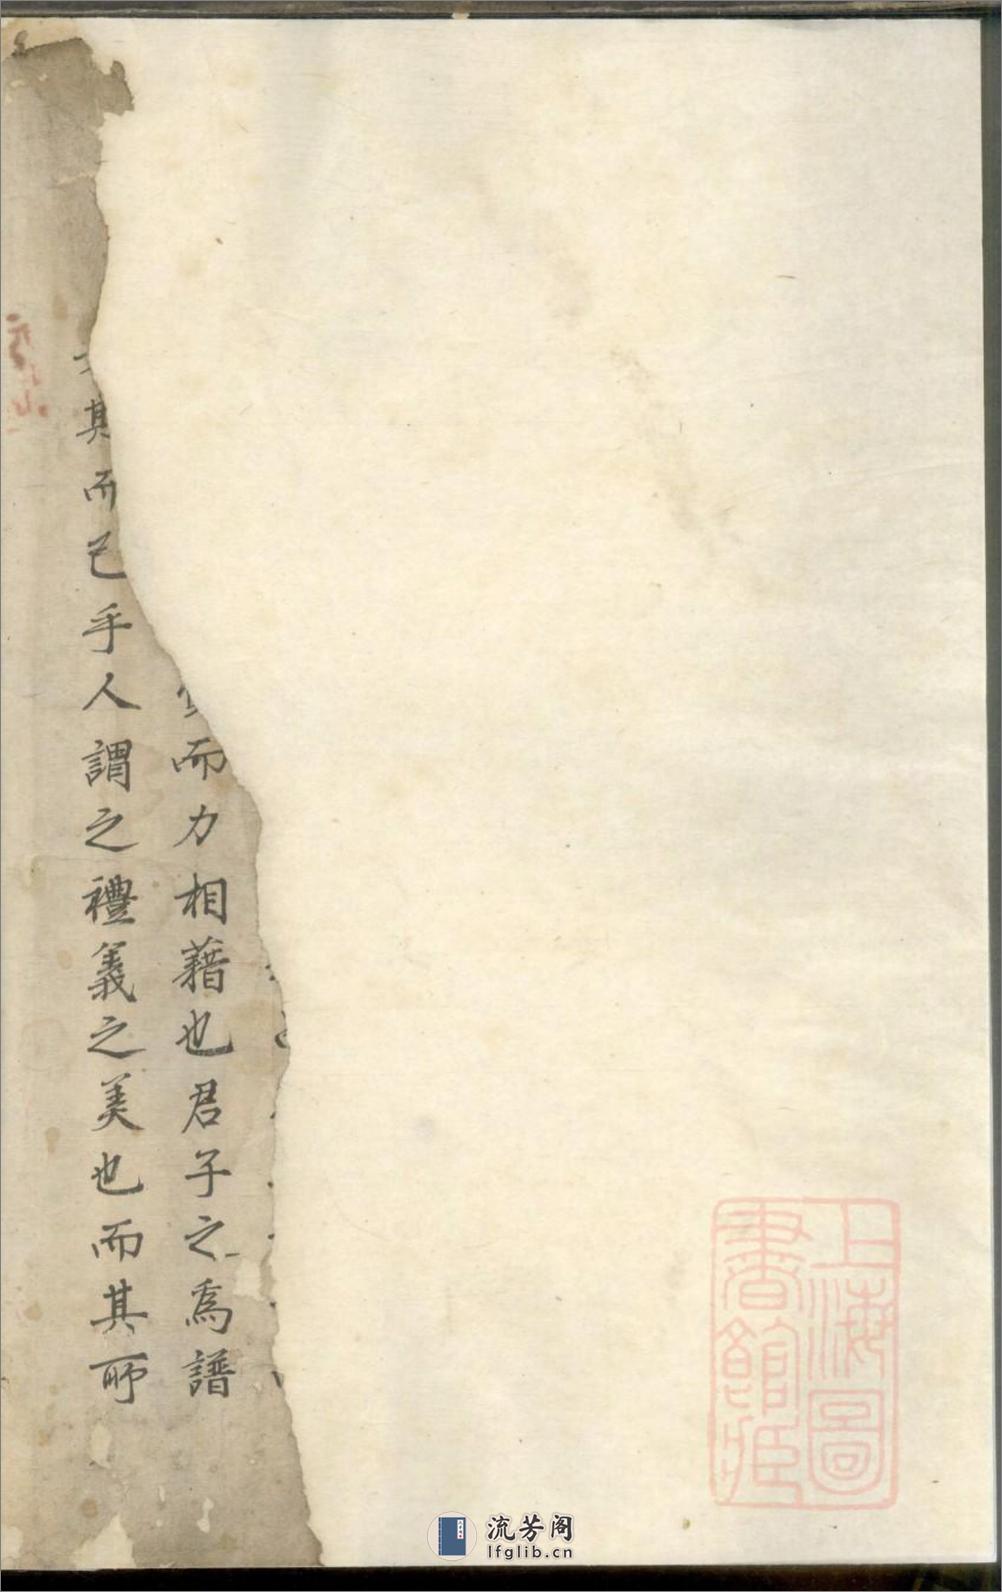 而力相藉也君子之為譜
其而已乎人謂之禮義之美也而其所
上海圖
書館藏
流芳阁
lfglib.cn